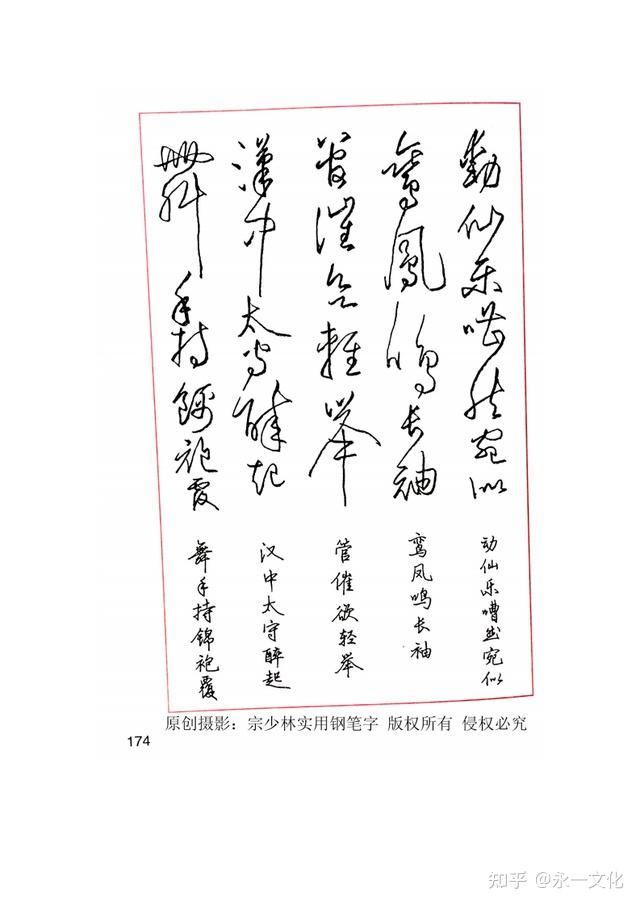 動仙乐嘈然宛似
鸾鳳鳴长袖
管催欲輕举
漢中太守醉起
舞手持錦袍覆
动仙乐嘈然宛似
鸾凤鸣长袖
管催欲轻举
汉中太守醉起
舞手持锦袍覆
原创摄影：宗少林实用钢笔字 版权所有 侵权必究
174
知乎 @永一文化